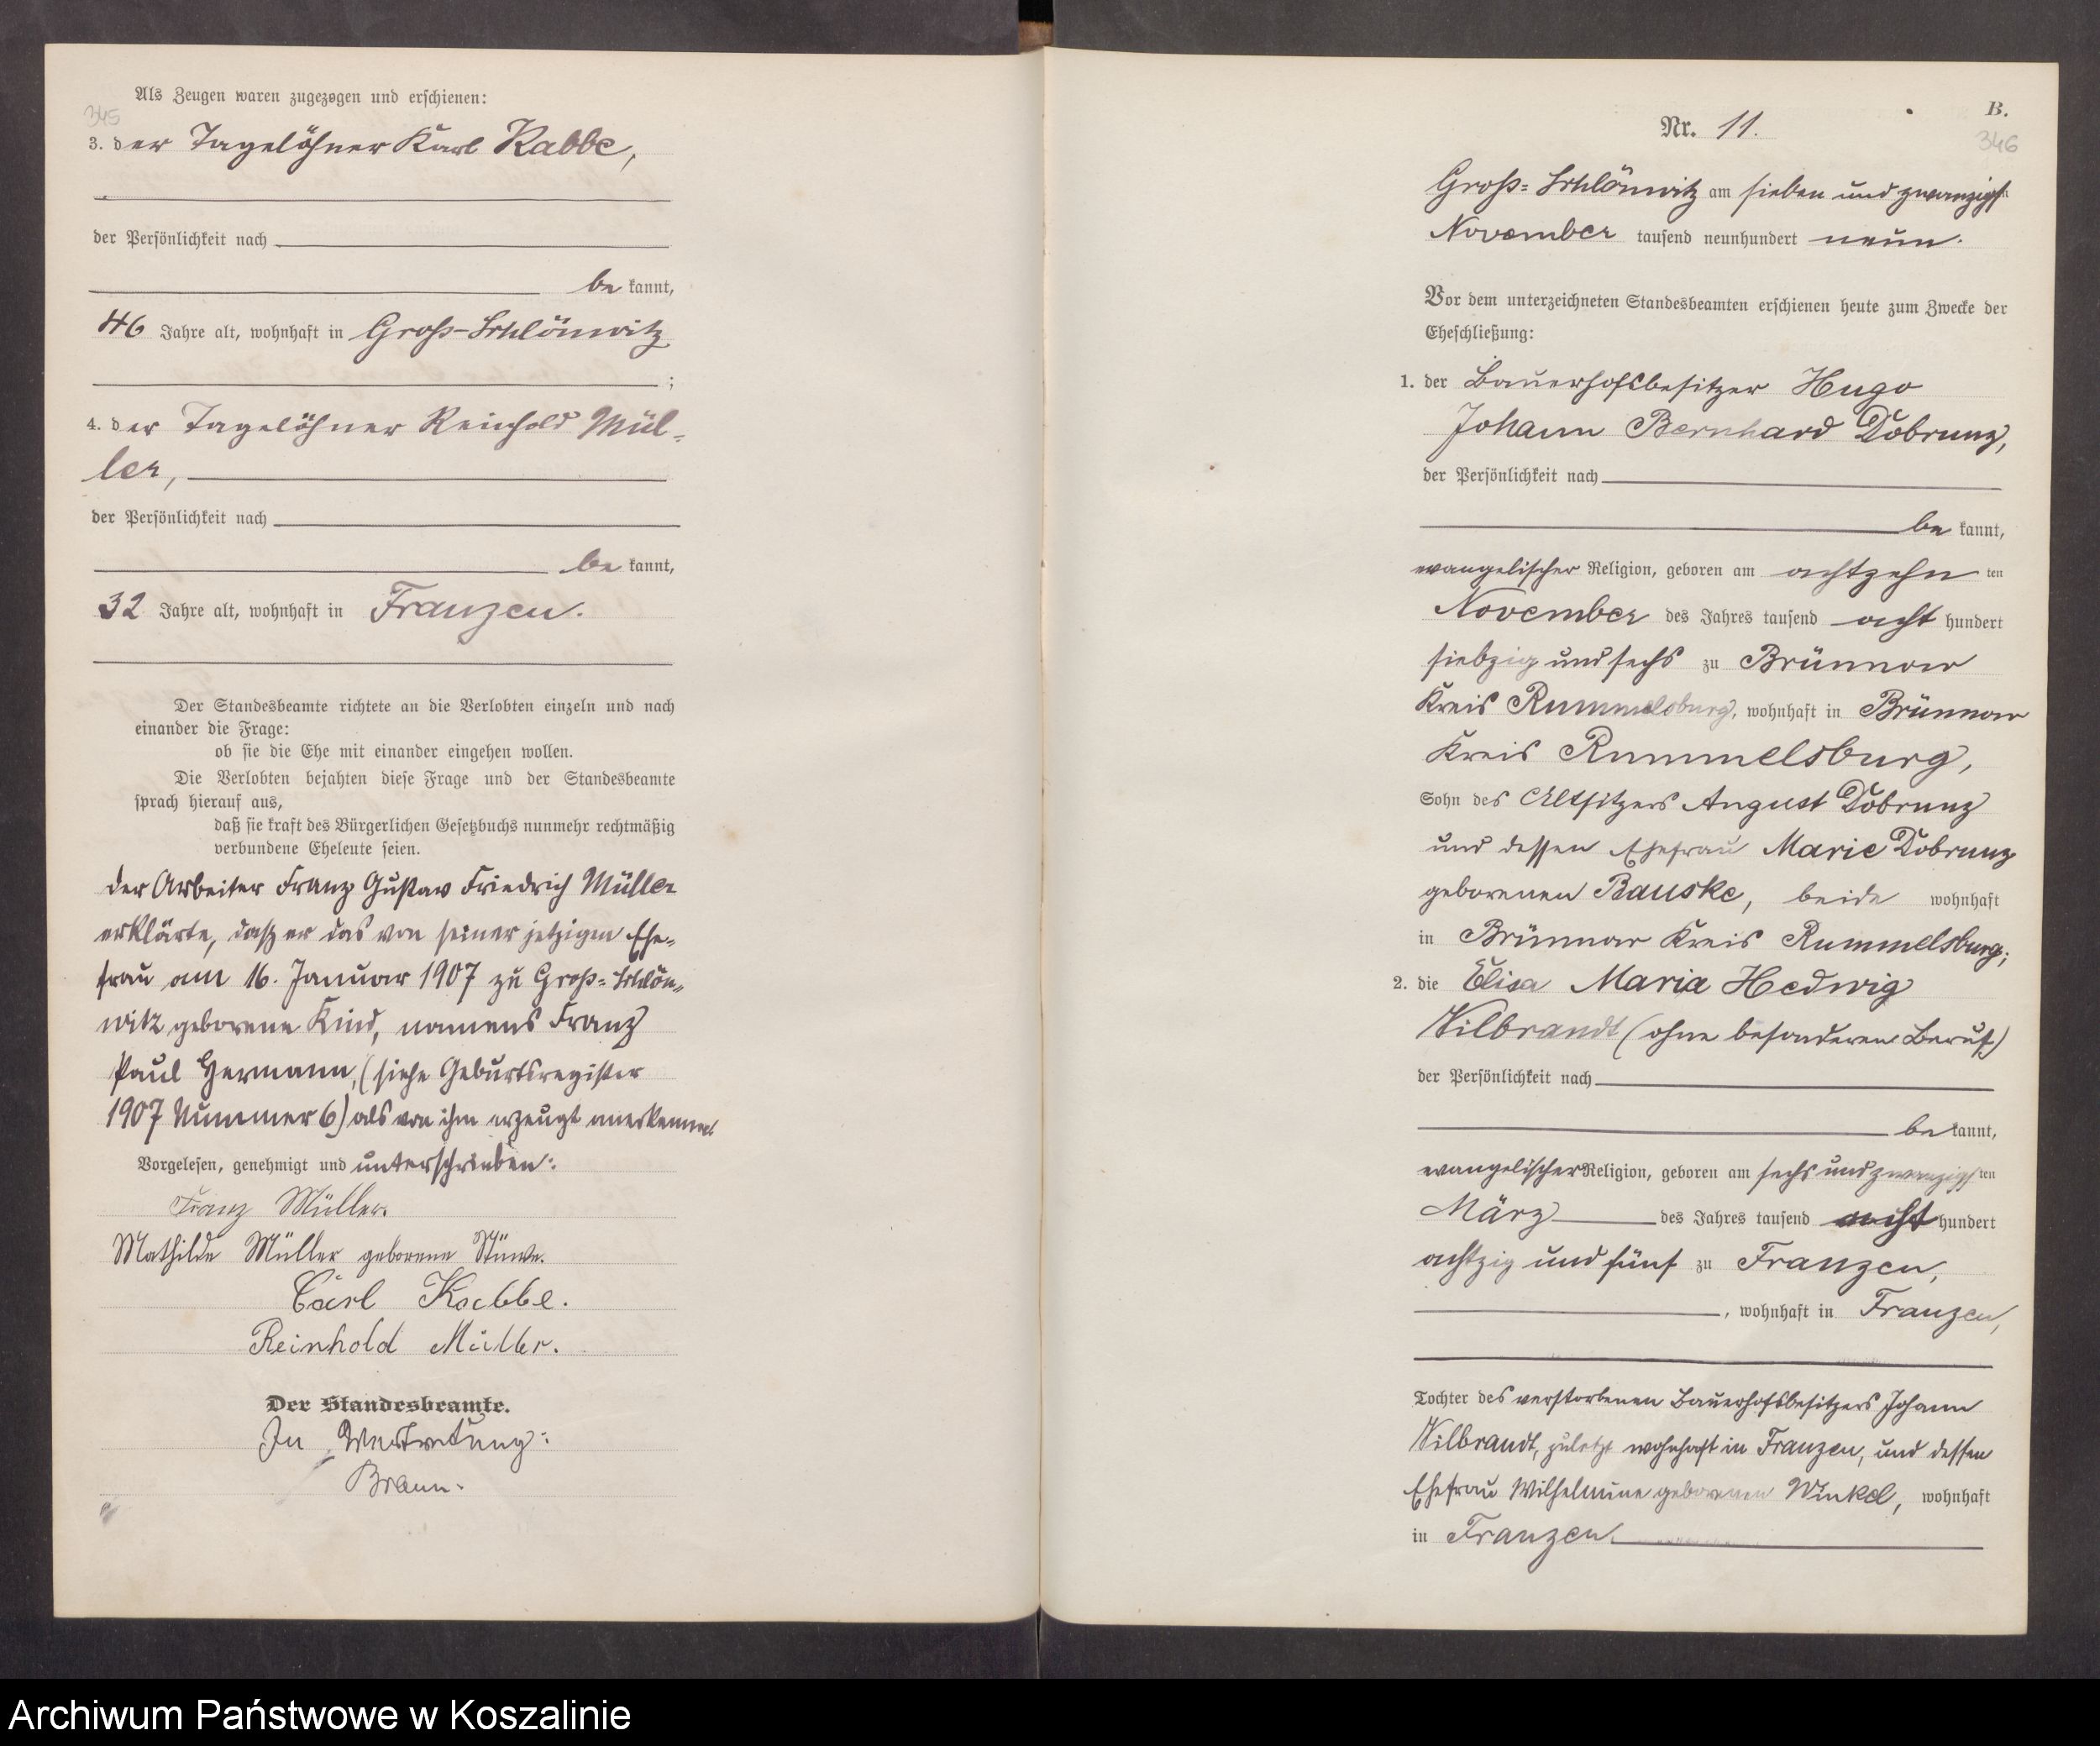 Als Zeugen waren zugezogen und erschienen:
345
3. der Tagelöhner Karl Kabbe,
der Persönlichkeit nach
be kannt,
46 Jahre alt, wohnhaft in Groß-Schlönwitz
;
4. der Tagelöhner Reinhold Mül-
ler,
der Persönlichkeit nach
be kannt,
32 Jahre alt, wohnhaft in Franzen.
Der Standesbeamte richtete an die Verlobten einzeln und nach
einander die Frage:
ob sie die Ehe mit einander eingehen wollen.
Die Verlobten bejahten diese Frage und der Standesbeamte
sprach hierauf aus,
daß sie kraft des Bürgerlichen Gesetzbuchs nunmehr rechtmäßig
verbundene Eheleute seien.
Der Arbeiter Franz Gustav Friedrich Müller
erklärte, daß er das von seiner jetzigen Ehe-
frau am 16. Januar 1907 zu Groß-Schlön-
witz geborene Kind, namens Franz
Paul Hermann, (siehe Geburtsregister
1907 Nummer 6) als von ihm erzeugt anerkenne.
Vorgelesen, genehmigt und unterschrieben:
Franz Müller.
Mathilde Müller geborene Stüwe.
Carl Kabbe.
Reinhold Müller.
Der Standesbeamte.
In Vertretung:
Braun.
B.
Nr. 11.
346
Groß-Schlönwitz am sieben und zwanzigsten
November tausend neunhundert neun.
Vor dem unterzeichneten Standesbeamten erschienen heute zum Zwecke der
Eheschließung:
1. der Bauerhofsbesitzer Hugo
Johann Bernhard Dobrunz,
der Persönlichkeit nach
be kannt,
evangelischer Religion, geboren am achtzehn ten
November des Jahres tausend acht hundert
siebzig und sechs zu Brünnow
Kreis Rummelsburg, wohnhaft in Brünnow
Kreis Rummelsburg,
Sohn des Altsitzers August Dobrunz
und dessen Ehefrau Marie Dobrunz
geborenen Bauske, beide wohnhaft
in Brünnow Kreis Rummelsburg;
2. die Elisa Maria Hedwig
Vilbrandt (ohne besonderen Beruf)
der Persönlichkeit nach
be kannt,
evangelischer Religion, geboren am sechs und zwanzigsten
März des Jahres tausend acht hundert
achtzig und fünf zu Franzen,
, wohnhaft in Franzen,
Tochter des verstorbenen Bauerhofsbesitzers Johann
Vilbrandt, zuletzt wohnhaft in Franzen, und dessen
Ehefrau Wilhelmine geborenen Winkel, wohnhaft
in Franzen.
Archiwum Państwowe w Koszalinie